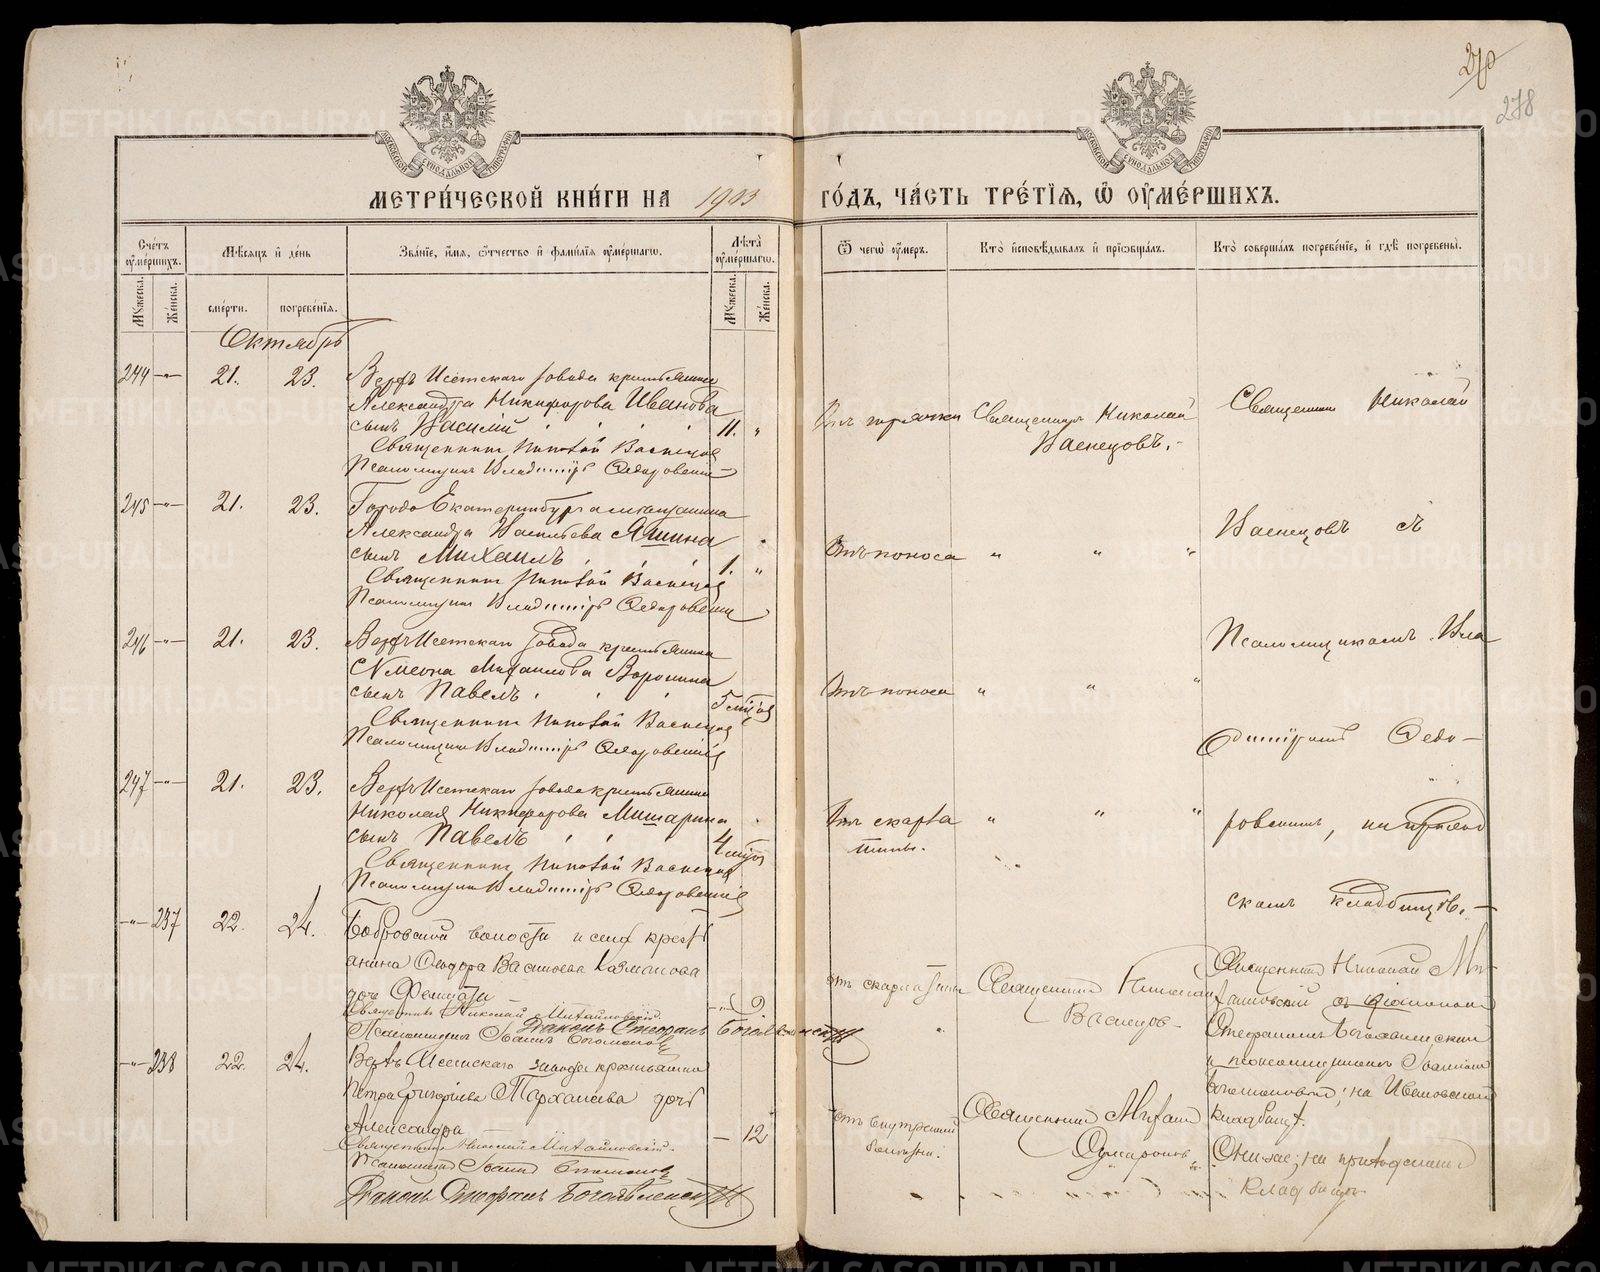 270
278
МОСКОВСКОЙ СѴНОДАЛЬНОЙ ТИПОГРАФІИ
МОСКОВСКОЙ СѴНОДАЛЬНОЙ ТИПОГРАФІИ
МЕТРИ́ЧЕСКОЙ КНИ́ГИ НА 1903 ГО́ДЪ, ЧА́СТЬ ТРЕ́ТІѦ, Ѽ ОУМЕ́РШИХЪ.
Сче́тъ оуме́ршихъ.
Мѣ́сяцъ и҆ де́нь
Зва́нїе, и҆́мѧ, ѻ҆́тчество и҆ фами́лїѧ оуме́ршагѡ.
Лѣ́та оуме́ршагѡ.
Ѿ чегѡ̀ оу́меръ.
Кто̀ и҆сповѣ́дывалъ и҆ прїѡбща́лъ.
Кто̀ соверша́лъ погребе́нїе, и҆ гдѣ̀ погребены̀.
Мꙋжеска. Же́нска. сме́рти. погребе́нїѧ. Мꙋжеска. Же́нска.
Октябрь
244 —"— 21. 23. Верхъ Исетскаго завода крестьянина
Александра Никифорова Иванова
сынъ Василій 11. "
Священникъ Николай Васнецов
Псаломщикъ Владиміръ Федоровский
Отъ горячки
Священникъ Николай
Васнецовъ.
Священник Николай
245 —"— 21. 23. Города Екатеринбурга мещанина
Александра Васильева Яшина
сынъ Михаилъ 1. "
Священникъ Николай Васнецов
Псаломщикъ Владиміръ Федоровский
Отъ поноса " " "
Васнецовъ съ
246 —"— 21. 23. Верхъ Исетскаго завода крестьянина
Симеона Михаилова Воронина
сынъ Павелъ
Священникъ Николай Васнецов
Псаломщикъ Владиміръ Федоровский
Отъ поноса " " "
Псаломщикомъ Вла
димиромъ Федо-
247 —"— 21. 23. Верхъ Исетскаго завода крестьянина
Николая Никифорова Мишарина
сынъ Павелъ
Священникъ Николай Васнецов
Псаломщикъ Владиміръ Федоровский
Отъ скарла
тины.
" " "
ровскимъ, на приход
скомъ кладбищѣ. —
—"— 237 22. 24. Бобровской волости и села кресть
анина Ѳеодора Васильева Казманова
дочь — 9
Священникъ Николай Михайловскій.
Псаломщикъ Іоаннъ Богомолов
Діаконъ Стефанъ Богоявленскій
отъ скарлатины
Священникъ Николай
Васнецов
Священникъ Николай Ми-
хайловскій съ діакономъ
Стефаномъ Богоявленским
и псаломщикомъ Іоанномъ
Богомоловым; на Ивановском
кладбищѣ.
—"— 238 22. 24. Верхъ Исетскаго завода крестьянина
Петра Григоріева дочь
Александра — 12
Священникъ Николай Михайловскій.
Псаломщикъ Іоаннъ Богомолов
Діаконъ Стефанъ Богоявленскій
Отъ внутренней
болезни.
Священникъ Михаил
Они же; на приходскомъ
кладбищѣ